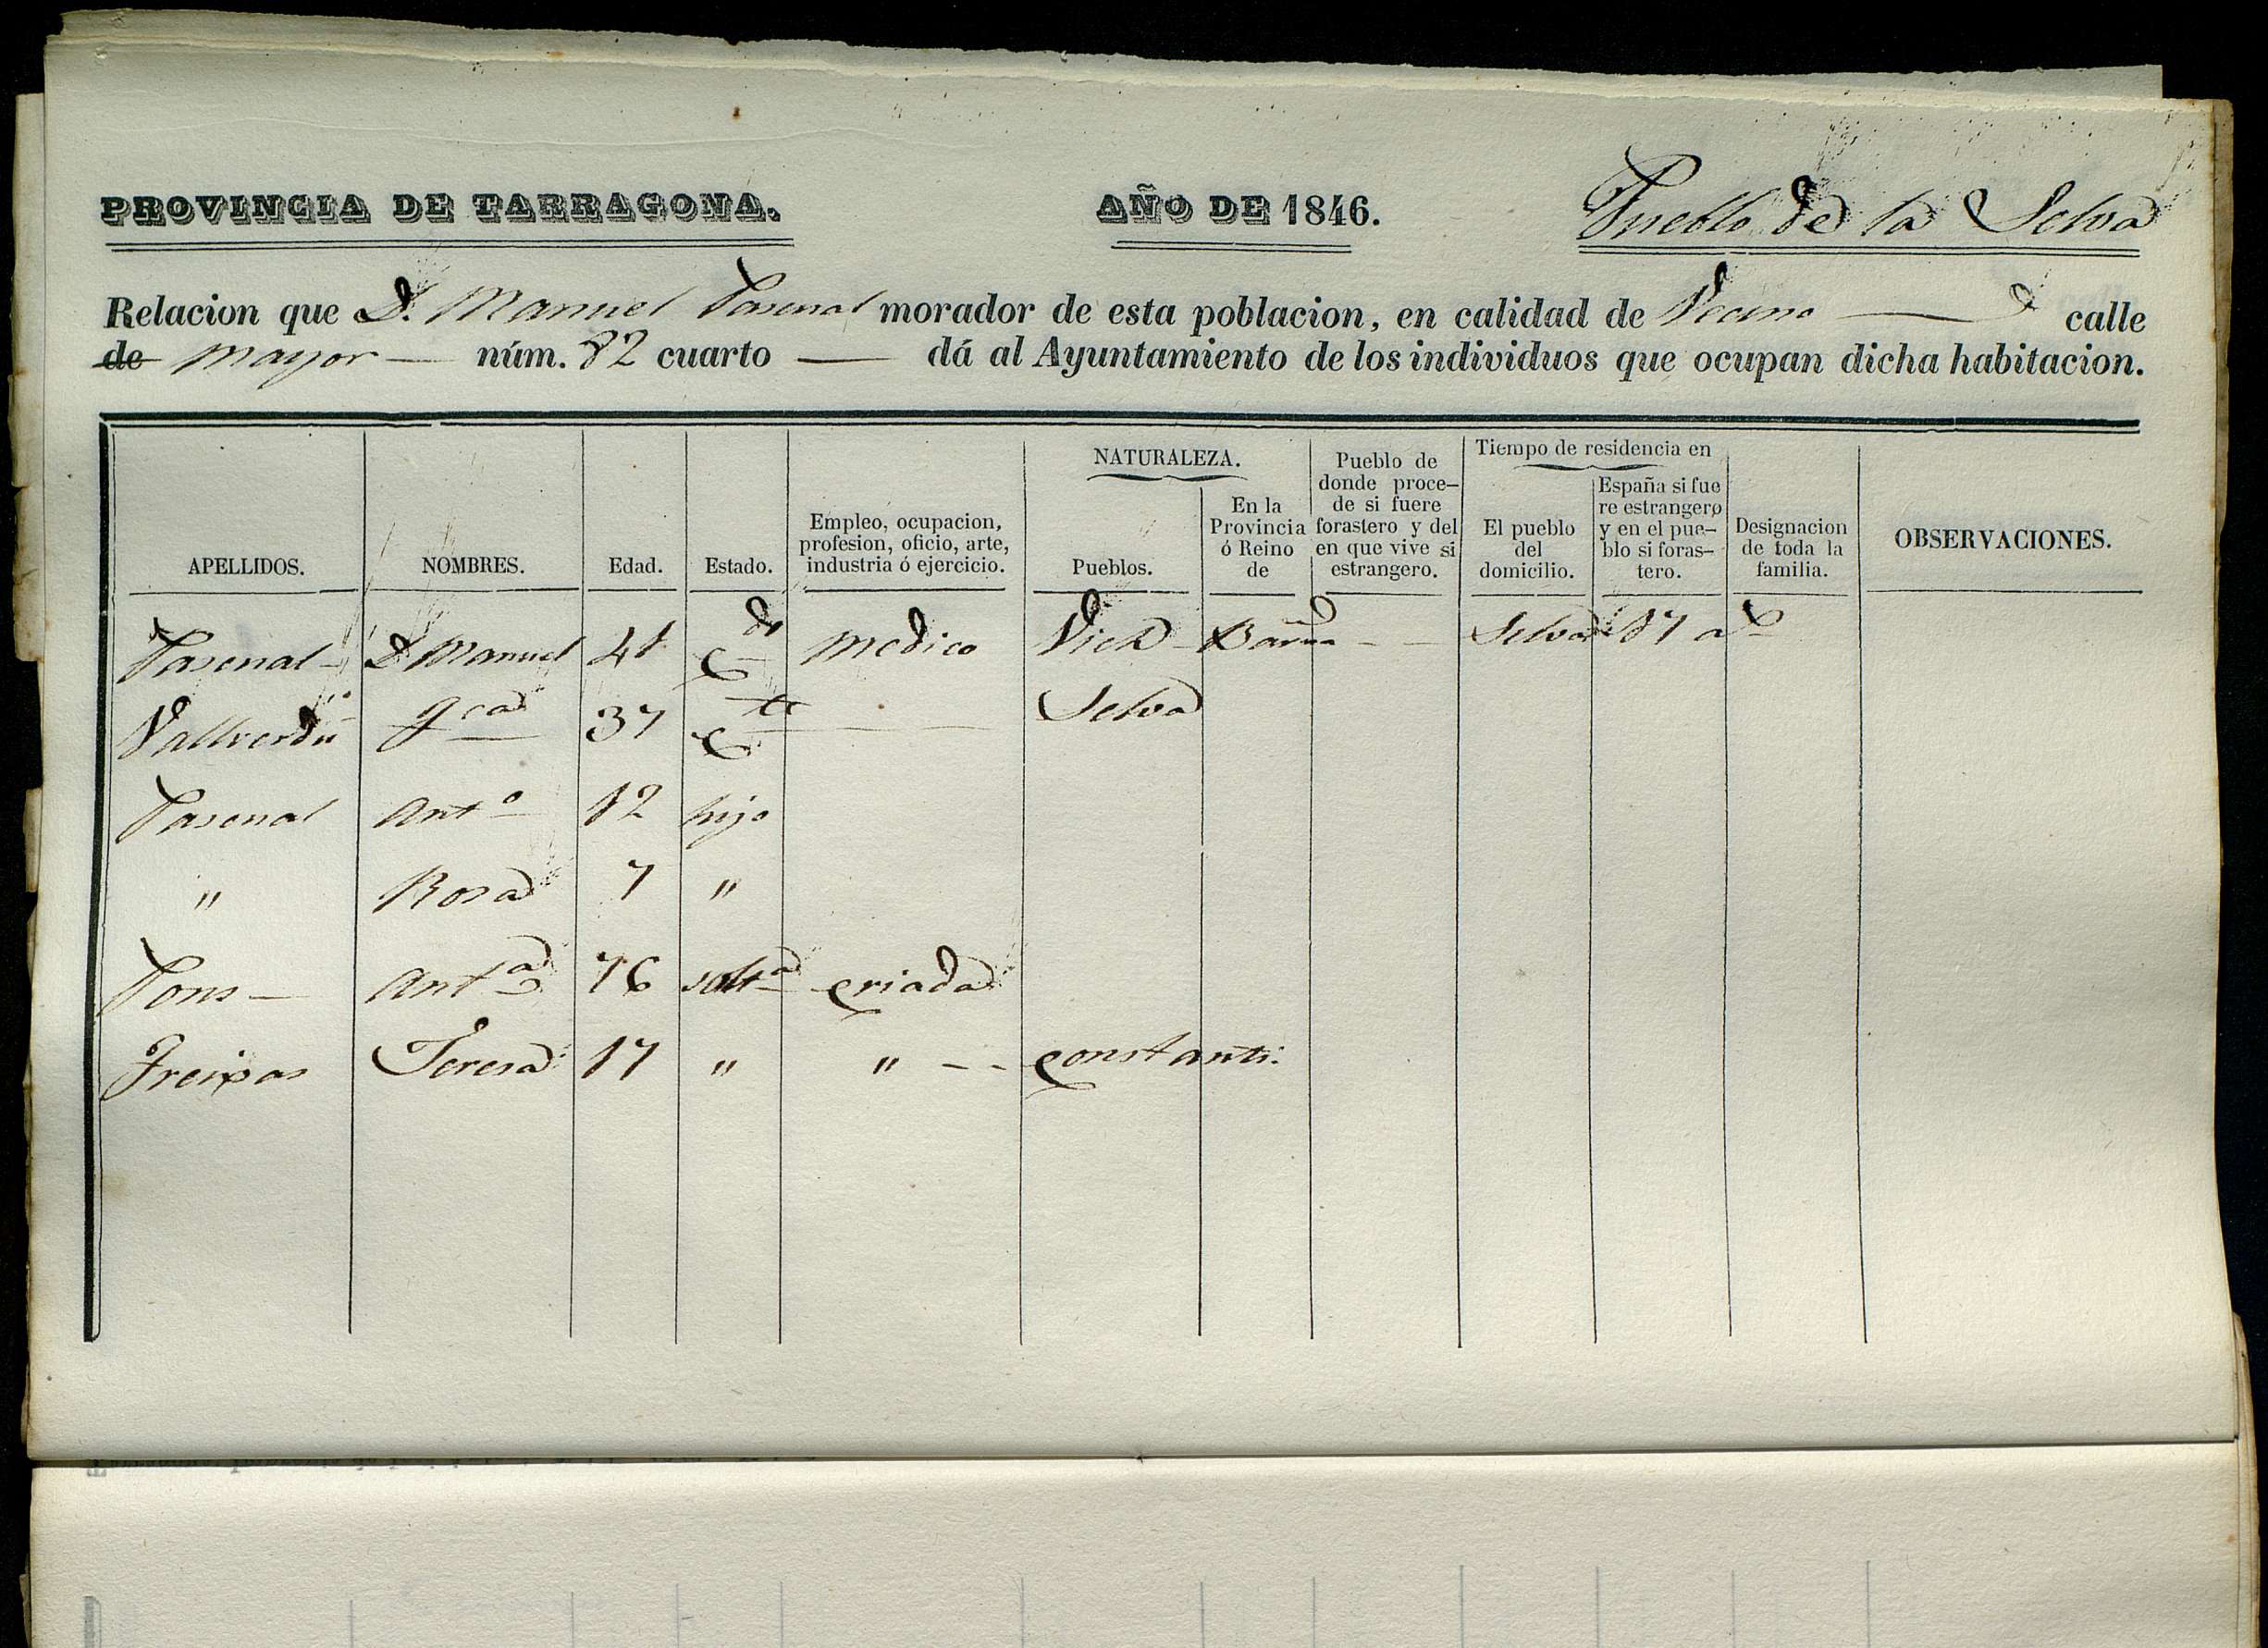 PROVINCIA DE TARRAGONA. AÑO DE 1846. Pueblo de la Selva
Relacion que D. Manuel Pascual morador de esta poblacion, en calidad de Vecino calle
de mayor núm. 82 cuarto dá al Ayuntamiento de los individuos que ocupan dicha habitacion.
APELLIDOS. NOMBRES. Edad. Estado. Empleo, ocupacion, profesion, oficio, arte, industria ó ejercicio. NATURALEZA. Pueblos. En la Provincia ó Reino de Pueblo de donde proce-de si fuere forastero y del en que vive si estrangero. Tiempo de residencia en El pueblo del domicilio. España si fue re estrangero y en el pue-blo si foras-tero. Designacion de toda la familia. OBSERVACIONES.
Pascual D. Manuel 41 C.do Medico Vich Barna Selva 17 a.s
Vallverdú 37 C.te Selva
Pascual Ant.o 12 hijo
" Rosa 7 "
Pons Ant.a 76 solt.a criada
Freixas Teresa 17 " " Constanti.